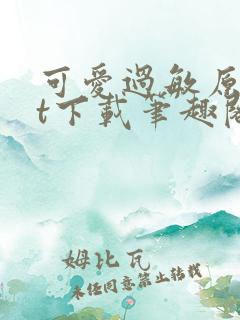 可愛過敏原
t下載筆趣閣
姆比瓦
未經同意禁止轉載